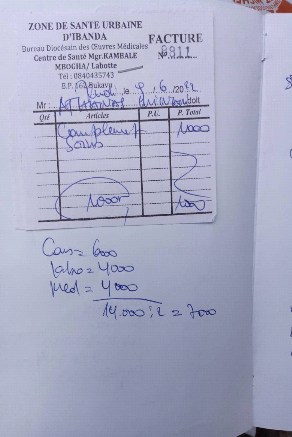 ZONE DE SANTE URBAINE
D'IBANDA
Bureau Diocésain des Œuvres Médicales
FACTURE
Centre de Santé Mgr.KAMBALE
N° 9911
MBOGHA/ Labotte
Tél : 0840433743
B.P. 162 Bukavu
le 9 / 6 /20
Mr : doit
Qté Articles P.U. P. Total
Complement 1000
Soins
1000 1000
Cons = 6000
labo = 4000
med = 4000
14.000 : 2 = 7000